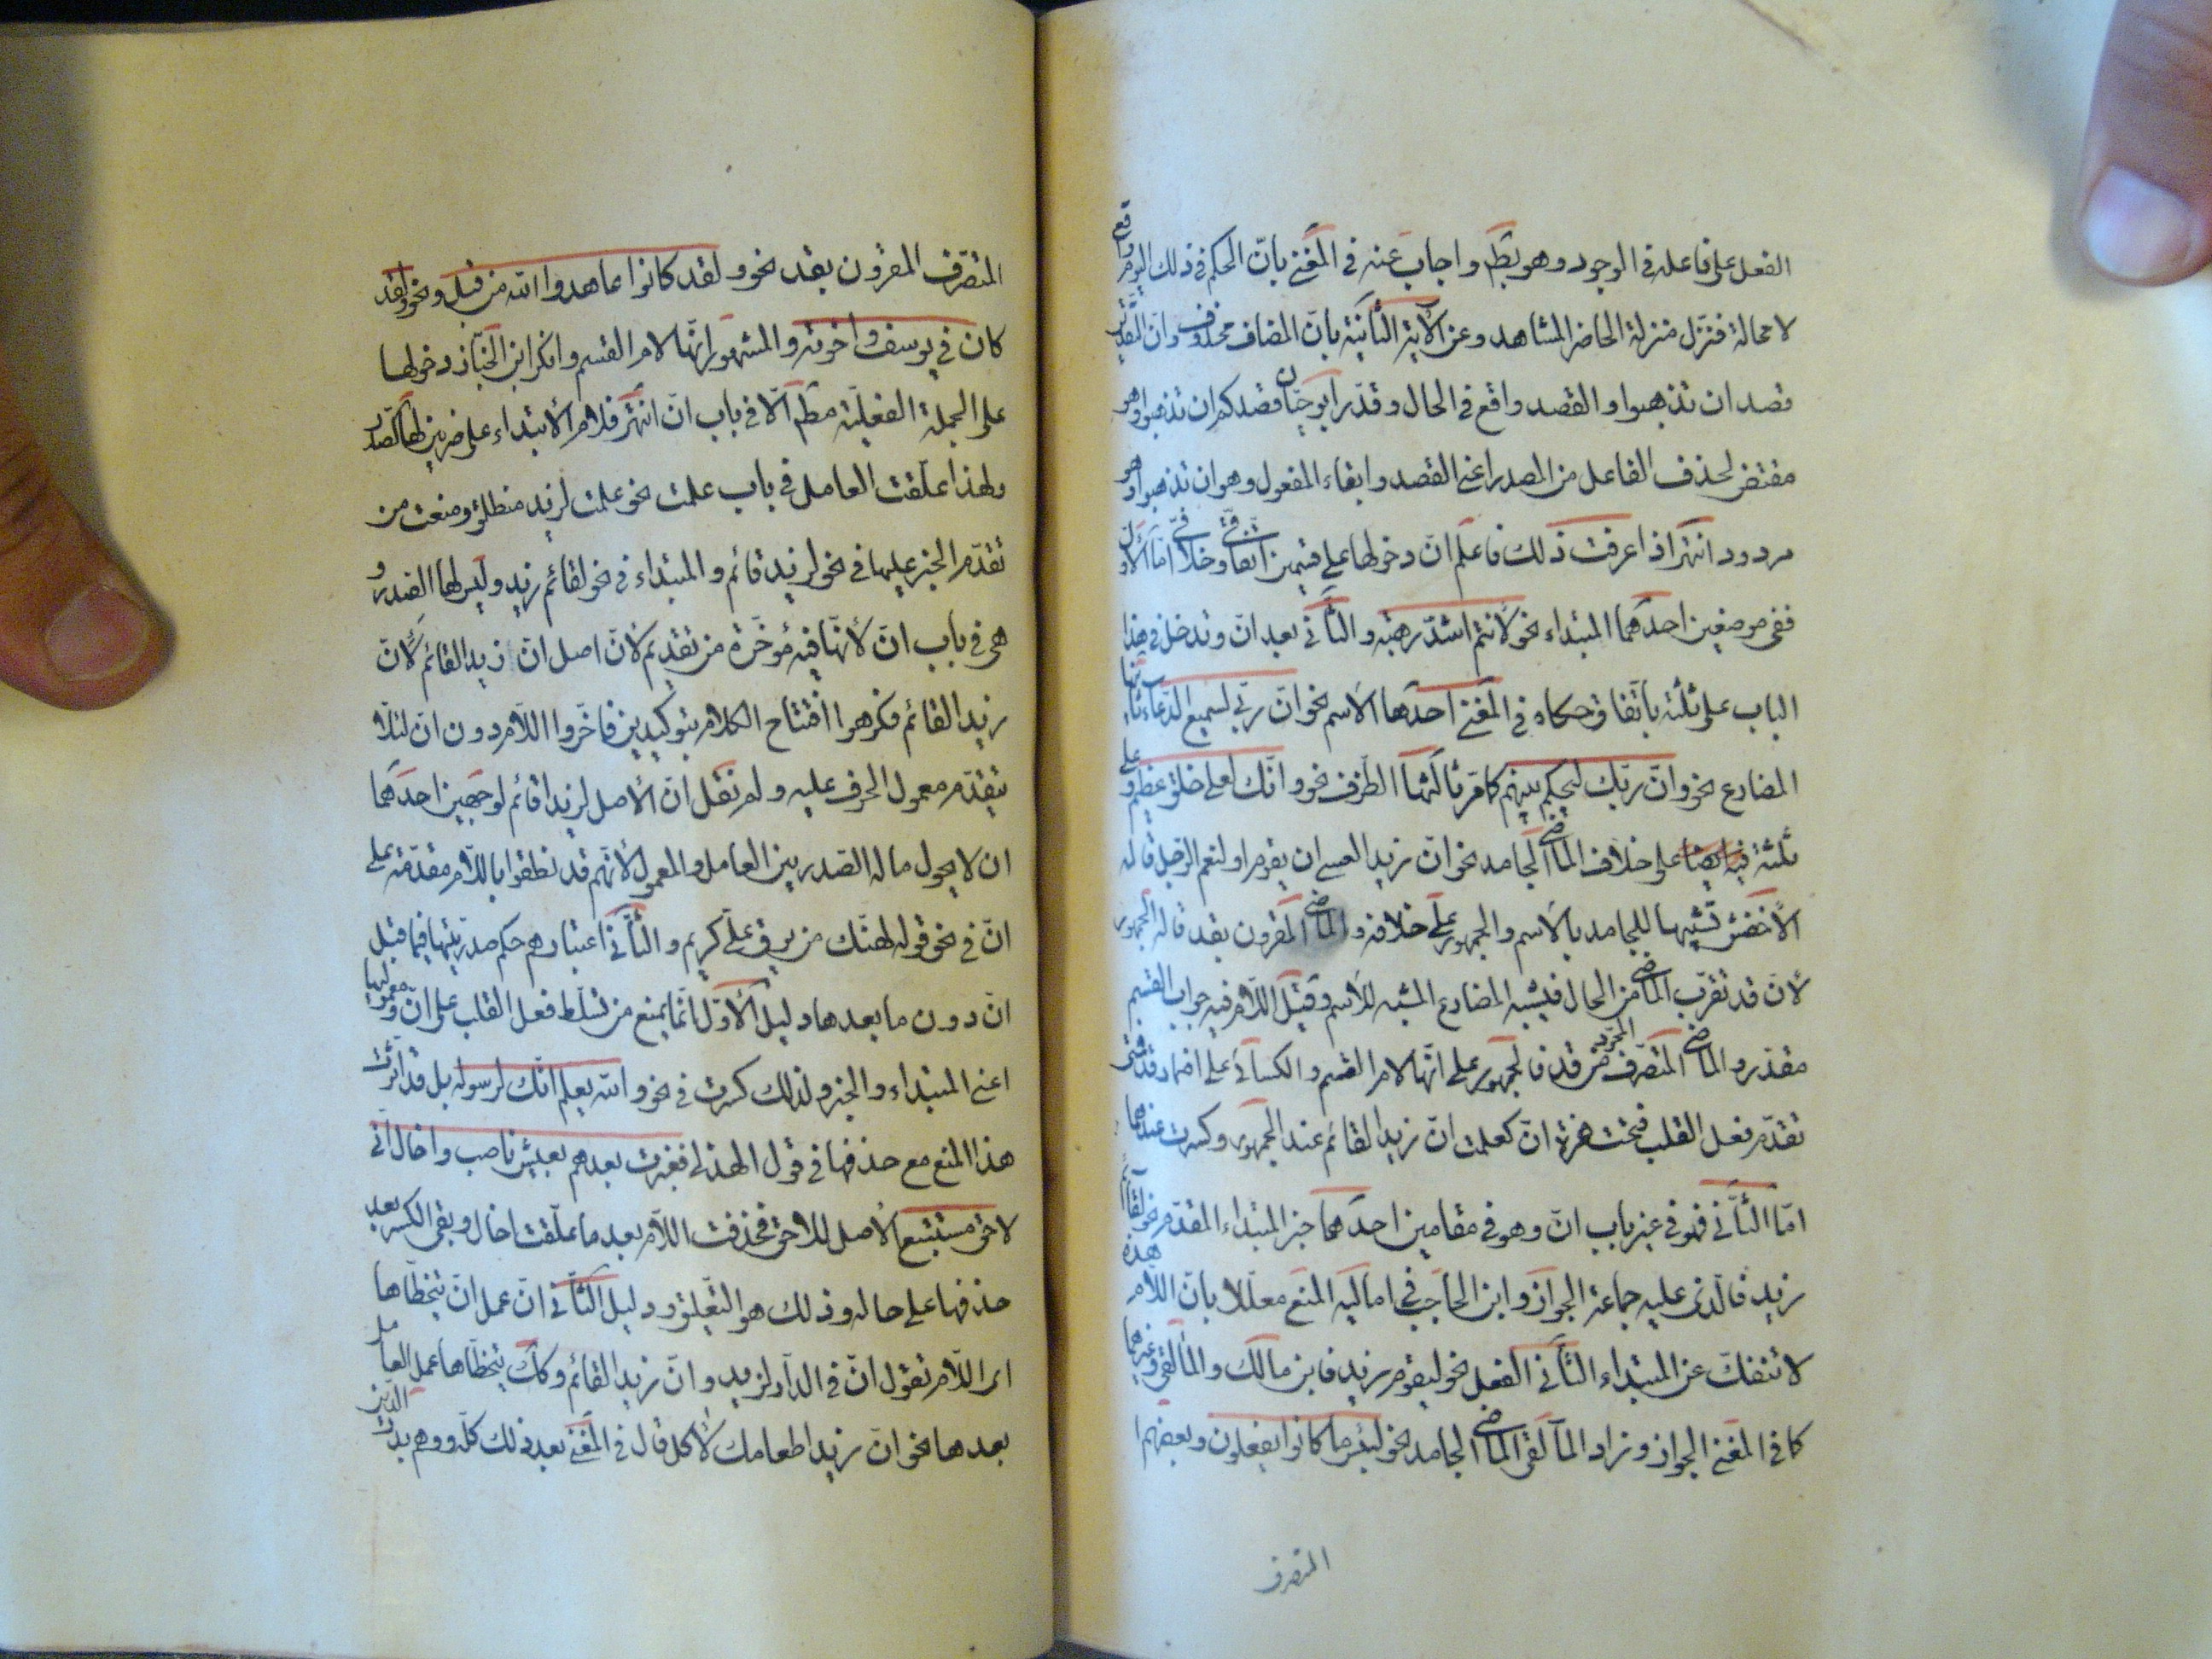 الفعل على فاعله في الوجود وهو بط واجاب عنه في المغني بانّ الحكم في ذلك اليوم واقع
لا محالة فنزّل منزلة الحاضر المشاهد وعن الآية الثانية بانّ المضاف محذوف وانّ التقدير
قصد ان تذهبوا والقصد واقع في الحال وقدّر ابو حيّان قصدكم ان تذهبوا وهو
مقتض لحذف الفاعل من المصدر اعني القصد وابقاء المفعول وهو ان تذهبوا وهو
مردود انتهى اذا عرفت ذلك فاعلم انّ دخولها على قسمين اتفاقيّ وخلافيّ امّا الاوّل
ففي موضعين احدهما المبتداء نحو لأنتم اشدّ رهبة والثاني بعد انّ وتدخل في هذا
الباب على ثلثة باتفاق حكاه في المغني احدها الاسم نحو انّ ربّي لسميع الدّعاء ثانيها
المضارع نحو وانّ ربّك ليحكم بينهم كما مرّ ثالثها الظرف نحو وانّك لعلى خلق عظيم وعلى
ثلثة فيه ايضا على خلاف الماضي الجامد نحو انّ زيدا لعسى ان يقوم او لنعم الرّجل قاله
الأخفش تشبيها للجامد بالاسم والجمهور على خلافه والماضي المقرون بقد قاله الجمهور
لأنّ قد تقرّب الماضي من الحال فيشبه المضارع المشبه للاسم وقيل اللّام فيه جواب القسم
مقدّر والماضي المتصرّف المجرّد من قد فالجمهور على انّها لام القسم والكسائي على اضمار قد فمتى
تقدّم فعل القلب فتحت همزة انّ كعلمت انّ زيدا لقائم عند الجمهور وكسرت عندهما
امّا الثّاني فهو في غير باب انّ وهو في مقامين احدهما خبر المبتداء المقدّم نحو لقائم
زيد فالّذى عليه جماعة الجواز وابن الحاجب في اماليه المنع معلّلا بانّ هذه اللّام
لا تنفكّ عن المبتداء الثاني الفعل نحو ليقوم زيد فابن مالك والمالقي وغيرهما
كما في المغني الجواز وزاد المالقي الماضي الجامد نحو لبئس ما كانوا يفعلون وبعضهم
المتصرف
المتصرّف المقرون بقد نحو ولقد كانوا عاهدوا الله من قبل ونحو لقد
كان في يوسف واخوته والمشهور انّها لام القسم وانكر ابن الخبّاز دخولها
على الجملة الفعليّة مطم الّا في باب انّ انتهى فلام الأبتداء على ضربين لها الصّدر
ولهذا علّقت العامل في باب علمت نحو علمت لزيد منطلق ومنعت من
تقدّم الخبر عليها في نحو لزيد قائم والمبتداء في نحو لقائم زيد وليس لها الصّدر و
هي في باب انّ لأنّها فيه مؤخّرة من تقديم لأنّ اصل انّ زيدا لقائم لأنّ
زيدا لقائم فكرهوا افتتاح الكلام بتوكيدين فاخّروا اللّام دون انّ لئلّا
يتقدّم معمول الحرف عليه ولم نقل انّ الأصل لزيدا قائم لوجهين احدهما
ان لا يحول ماله الصّدر بين العامل والمعمول لأنّهم قد نطقوا باللّام مقدّمة على
انّ في نحو قوله لهنّك من برق علىّ كريم والثّاني اعتبارهم حكم صدريّتها فيما قبل
انّ دون ما بعدها دليل الأوّل انّما يمنع من تسلّط فعل القلب على انّ ومعموليها
اعني المبتداء والخبر ولذلك كسرت في نحو والله يعلم انّك لرسوله بل قد اثّرت
هذا المنع مع حذفها في قول الهذلى فغبرت بعدهم بعيش ناصب واخال انّي
لاحق مستتبع الأصل للاحق فحذفت اللّام بعد ما علّقت اخال وبقى الكسر بعد
حذفها على حاله وذلك هو التّعليق ودليل الثّاني انّ عمل انّ يتخطّاها
ابر اللّام تقول انّ في الدّار لزيد وانّ زيدا لقائم وكك يتخطّاها عمل العامل
بعدها نحو انّ زيدا طعامك لآكل قال في المغني بعد ذلك كلّه ووهم بدر الدّين